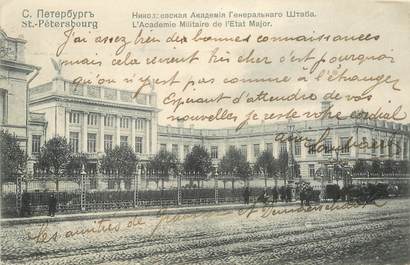 С. Петербургъ
St.-Pétersbourg
Николаевская Академія Генеральнаго Штаба.
L'Academie Militaire de l'Etat Major.
J'ai assez bien des bonnes connaissances
mais cela revient très cher c'est pourquoi
qu'on n'y est pas comme à l'étranger
Espérant d'attendre de vos
nouvelles, je reste votre cordial
ami
les amitiés de